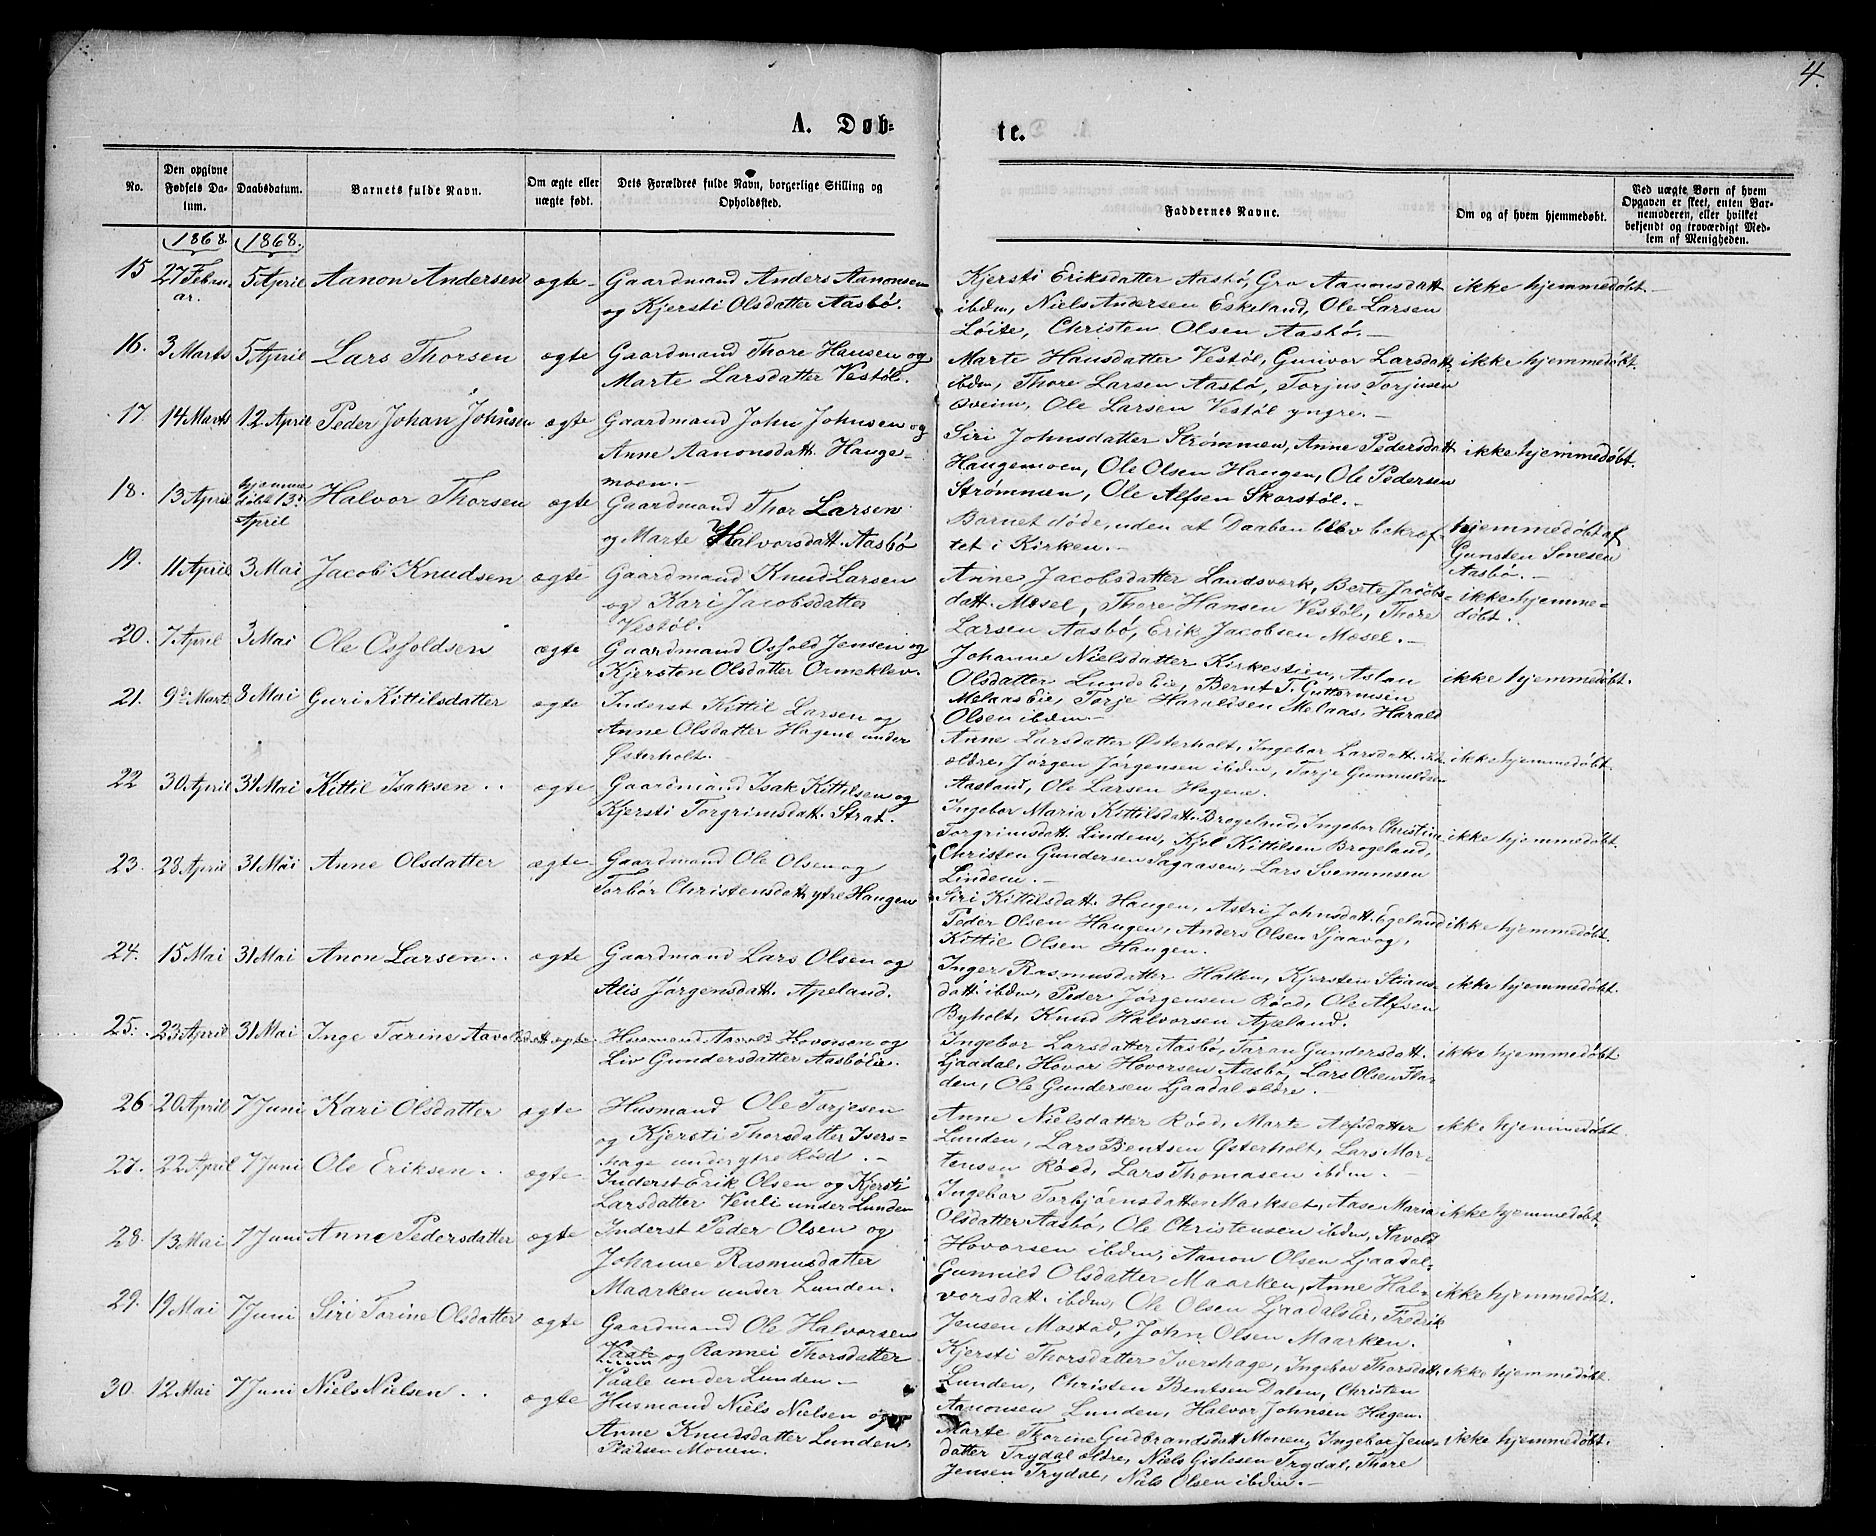 4.
A. Døb-
te.
No.
Den opgivne
Fødsels Da-
tum.
Daabsdatum.
Barnets fulde Navn.
Om ægte eller
uægte født.
Dets Forældres fulde Navn, borgerlige Stilling og
Opholdssted.
Faddernes Navne.
Om og af hvem hjemmedøbt.
Ved uægte Børn af hvem
Opgaven er skeet, enten Bar-
nemoderen, eller hvilket
bekjendt og troværdigt Med-
lem af Menigheden.
1868. 1868.
15 27 Febru- 5 April Aanon Andersen ægte Gaardmand Anders Aanonsen
ar. og Kjersti Olsdatter Aasbø.
Kjersti Eriksdatter Aasbø, Gro Aanonsdatt ikke hjemmedøbt.
ibdm, Niels Andersen Eskeland, Ole Larsen
Løite, Christen Olsen Aasbø.
16. 3 Marts 5 April Lars Thorsen ægte Gaardmand Thore Hansen og
Marte Larsdatter Vestøl.
Marte Hansdatter Vestøl, Gunvor Larsdatt ikke hjemmedøbt.
ibdm, Thore Larsen Aasbø, Torjus Torjusen
Sveim, Ole Larsen Vestøl yngre.
17. 14 Marts 12 April Peder Johan Johnsen ægte Gaardmand John Johnsen og
Anne Aanonsdatt. Hauge-
moen.
Siri Johnsdatter Strømmen, Anne Pedersdatt ikke hjemmedøbt.
Haugemoen, Ole Olsen Haugen, Ole Pedersen
Strømmen, Ole Alfsen Skorstøl.
18. 13 April hjemme
døbt 13.
April Halvor Thorsen ægte Gaardmand Thor Larsen
og Marte Halvorsdatt. Aasbø
Barnet døde, uden at Daaben blev bekræf-
tet i Kirken.
hjemmedøbt af
Gunsten Sonesen
Aasbø.
19. 11 April 3 Mai Jacob Knudsen ægte Gaardmand Knud Larsen
og Kari Jacobsdatter
Vestøl.
Anne Jacobsdatter Landsverk, Berte Jacobs- ikke hjemme-
datt. Mosel, Thore Hansen Vestøl, Thore døbt.
Larsen Aasbø, Erik Jacobsen Mosel.
20. 7 April 3 Mai Ole Osfoldsen ægte Gaardmand Osfold Jensen og
Kjersten Olsdatter Ormeklev.
Johanne Nielsdatter Kirkestien, Aslau
Olsdatter Lunds Eie, Bernt T. Guttormsen ikke hjemmedøbt.
Melaas Eie, Torje Haraldsen Melaas, Harald
Olsen ibdm.
21. 9de Marts 3 Mai Guri Kittilsdatter ægte Inderst Kittil Larsen og
Anne Olsdatter Hagene under
Østerholt.
Anne Larsdatter Østerholt, Ingebor Larsdatt. ibd ikke hjemmedøbt.
ældre, Jørgen Jørgensen ibdm, Torje Gunnuldsen
Aasland, Ole Larsen Hagene.
22 30 April 31 Mai Kittil Isaksen ægte Gaardmand Isak Kittilsen og
Kjersti Torgrimsdatt. Strat.
Ingebor Maria Kittilsdatt. Brogeland, Ingebor Christina ikke hjemmedøbt.
Torgrimsdatt. Lindem, Kjel Kittilsen Brogeland,
Christen Gundersen Sagaasen, Lars Svenumsen
Lindem.
23. 28 April 31 Mai Anne Olsdatter ægte Gaardmand Ole Olsen og
Torbør Christensdatt. ytre Haugen
Siri Kittilsdatt. Haugen, Astri Johnsdatt. Egeland ikke hjemmedøbt.
Peder Olsen Haugen, Anders Olsen Sjaavog,
Kittil Olsen Haugen.
24. 15 Mai 31 Mai Anon Larsen ægte Gaardmand Lars Olsen og
Alis Jørgensdatt. Apeland.
Inger Rasmusdatter Halten, Kjersten Stians- ikke hjemmedøbt.
datt. ibdm, Peder Jørgensen Røed, Ole Alfsen
Byholt, Knud Halvorsen Apeland.
25. 23 April 31 Mai Inge Tarine Aavoldsdatt ægte Husmand Aavold Hovorsen og
Liv Gundersdatter Aasbø Eie.
Ingebor Larsdatter Aasbø, Taran Gundersdatt. ikke hjemmedøbt
Ljaadal, Hovor Hovorsen Aasbø, Lars Olsen Fla-
den, Ole Gundersen Ljaadal ældre.
26 20 April 7 Juni Kari Olsdatter ægte Husmand Ole Torjesen
og Kjersti Thorsdatter Ivers-
hage under ytre Røed.
Anne Nielsdatter Røed, Marte Alfsdatter ikke hjemmedøbt
Lunden, Lars Bentsen Østerholt, Lars Mor-
tensen Røed, Lars Thomasen ibdm.
27. 22 April 7 Juni Ole Eriksen ægte Inderst Erik Olsen og Kjersti
Larsdatter Venli under Lunden
Ingebor Torbjørnsdatter Markset, Aase Maria ikke hjemmedøbt
Olsdatter Aasbø, Ole Christensen ibdm, Aavold
Hovorsen ibdm, Aanon Olsen Ljaadal.
28. 13 Mai 7 Juni Anne Pedersdatter ægte Inderst Peder Olsen og
Johanne Rasmusdatter
Maarken under Lunden.
Gunnild Olsdatter Maarken, Anne Hal- ikke hjemmedøbt.
vorsdatt. ibdm, Ole Olsen Ljaadals Eie, Fredrik
Jensen Mostad, John Olsen Maarken.
29. 19 Mai 7 Juni Siri Torine Olsdatter ægte Gaardmand Ole Halvorsen
og Rannei Thorsdatter
Vaale under Lunden
Kjersti Thorsdatter Ivershage, Ingebor Thorsdatt. ikke hjemmedøbt
Lunden, Christen Bentsen Dalen, Christen
Aanonsen Lunden, Halvor Johnsen Hagen.
30. 12 Mai 7 Juni Niels Nielsen ægte Husmand Niels Nielsen og
Anne Knudsdatter Lunden
Pladsen Monen.
Marte Torine Gudbrandsdatt. Monen, Ingebor Jens- ikke hjemmedøbt.
datter Trydal ældre, Niels Gislesen Trydal, Thore
Jensen Trydal, Niels Olsen ibdm.